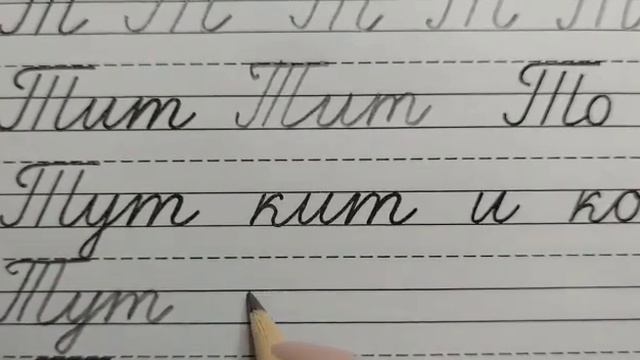 Т Т Т Т Т
Тит Тит То
Тут кит и ко
Тут